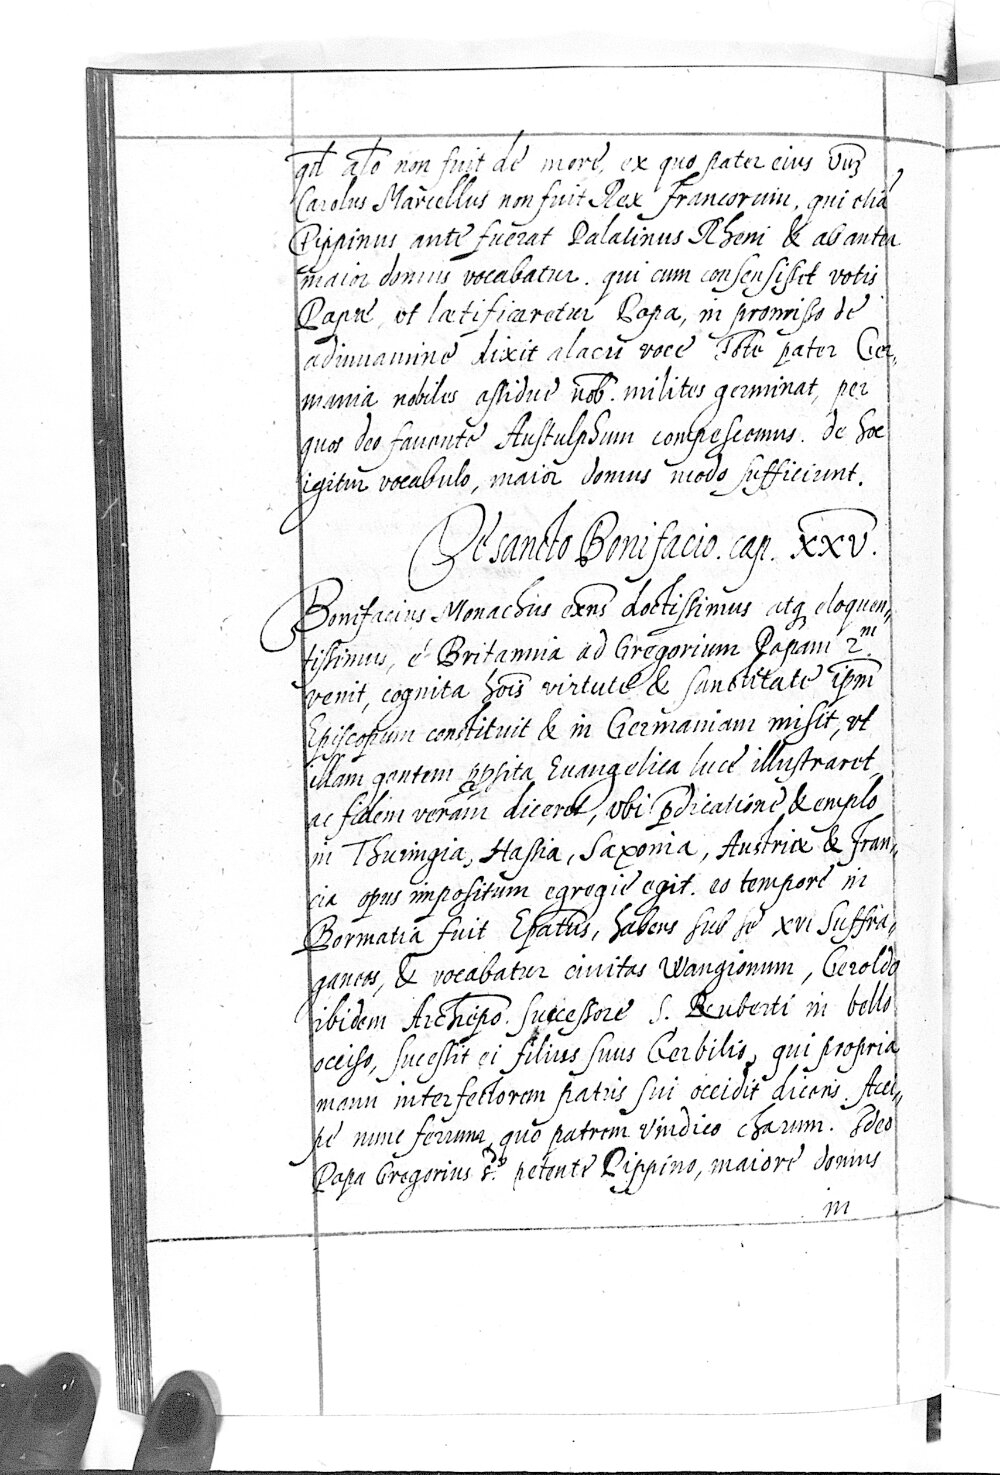 qd̄ alō non fuit de more, ex quo pater eius vīȝ
Carolus Marcellus non fuit Rex Francorum, qui etiā
Pippinus ante fuerat Palatinus Rheni & ab antea
maior domus vocabatur. qui cum consensisset votis
Papæ, vt lætificaretur Papa, in promisso de
adiuuamine dixit alacri voce Iste pater Ger„
mania nobiles assidue nob. milites germinat, per
quos deo fauente Austulphum compescemus. de hoc
igitur vocabulo, maior domus modo sufficiunt.
De sancto Bonifacio. cap. XXV.
Bonifacius Monachus exn̄s doctissimus atq eloquen„
tissimus, é Britannia ad Gregorium Papam 2.m
venit, cognita hoīs virtute & sanctitate ipm̄
Episcopum constituit & in Germaniam misit, vt
illam gentem ppsita Euangelica luce illustraret,
ac fidem veram diceret, vbi pdicatione & emplo
in Thuringia, Hassia, Saxonia, Austria & Fran„
cia opus impositum egregie egit. eo tempore in
Bormatia fuit Epātus, habens sub se XVI suffra„
ganeos, & vocabatur ciuitas Wangionum, Geroldo
ibidem Archiepō. successore S. Ruberti in bello
occiso, sucessit ei filius suus Gerbilis, qui propria
manu interfectorem patris sui occidit dicens. Acci„
pe nunc ferrum, quo patrem vindico charum. Ideo
Papa Gregorius 2.us petente Pippino, maiore domus
in